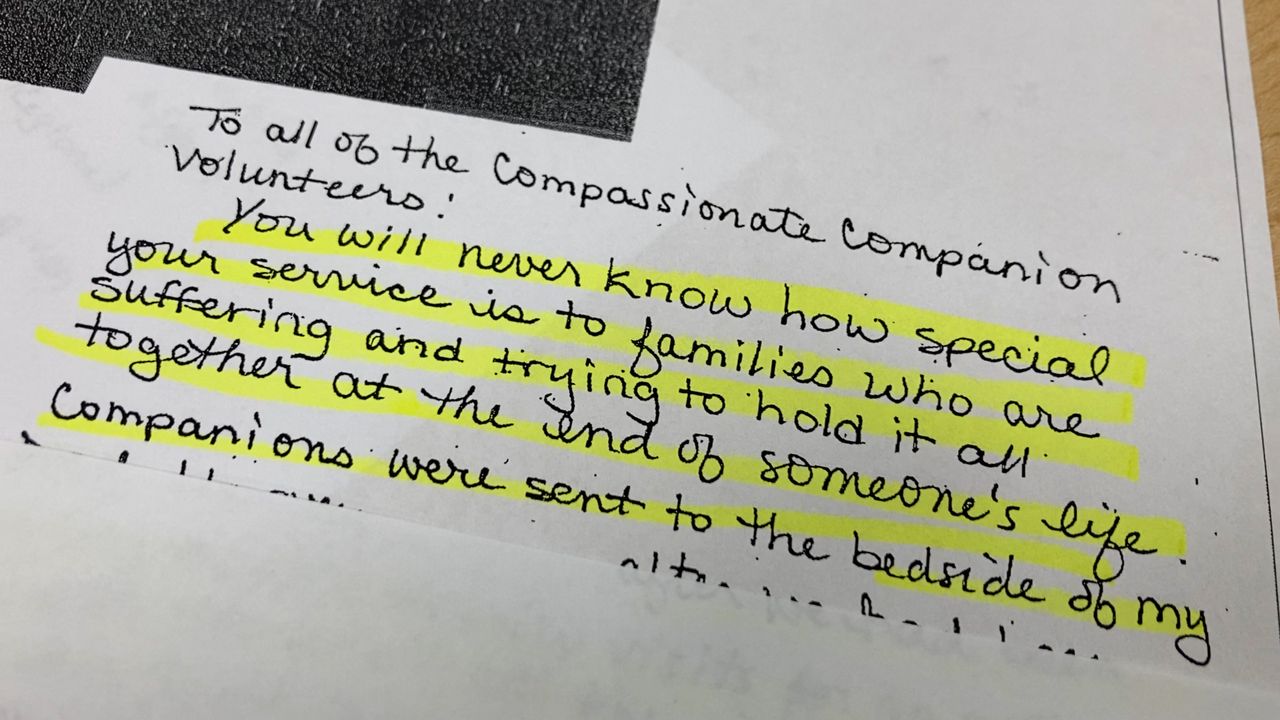 To all of the Compassionate Companion
Volunteers:
You will never know how special
your service is to families who are
suffering and trying to hold it all
together at the end of someone's life.
Companions were sent to the bedside of my